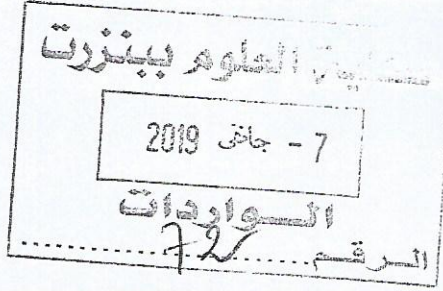 كلية العلوم ببنزرت
7 - جانفي 2019
الـــواردات
الـرقـم